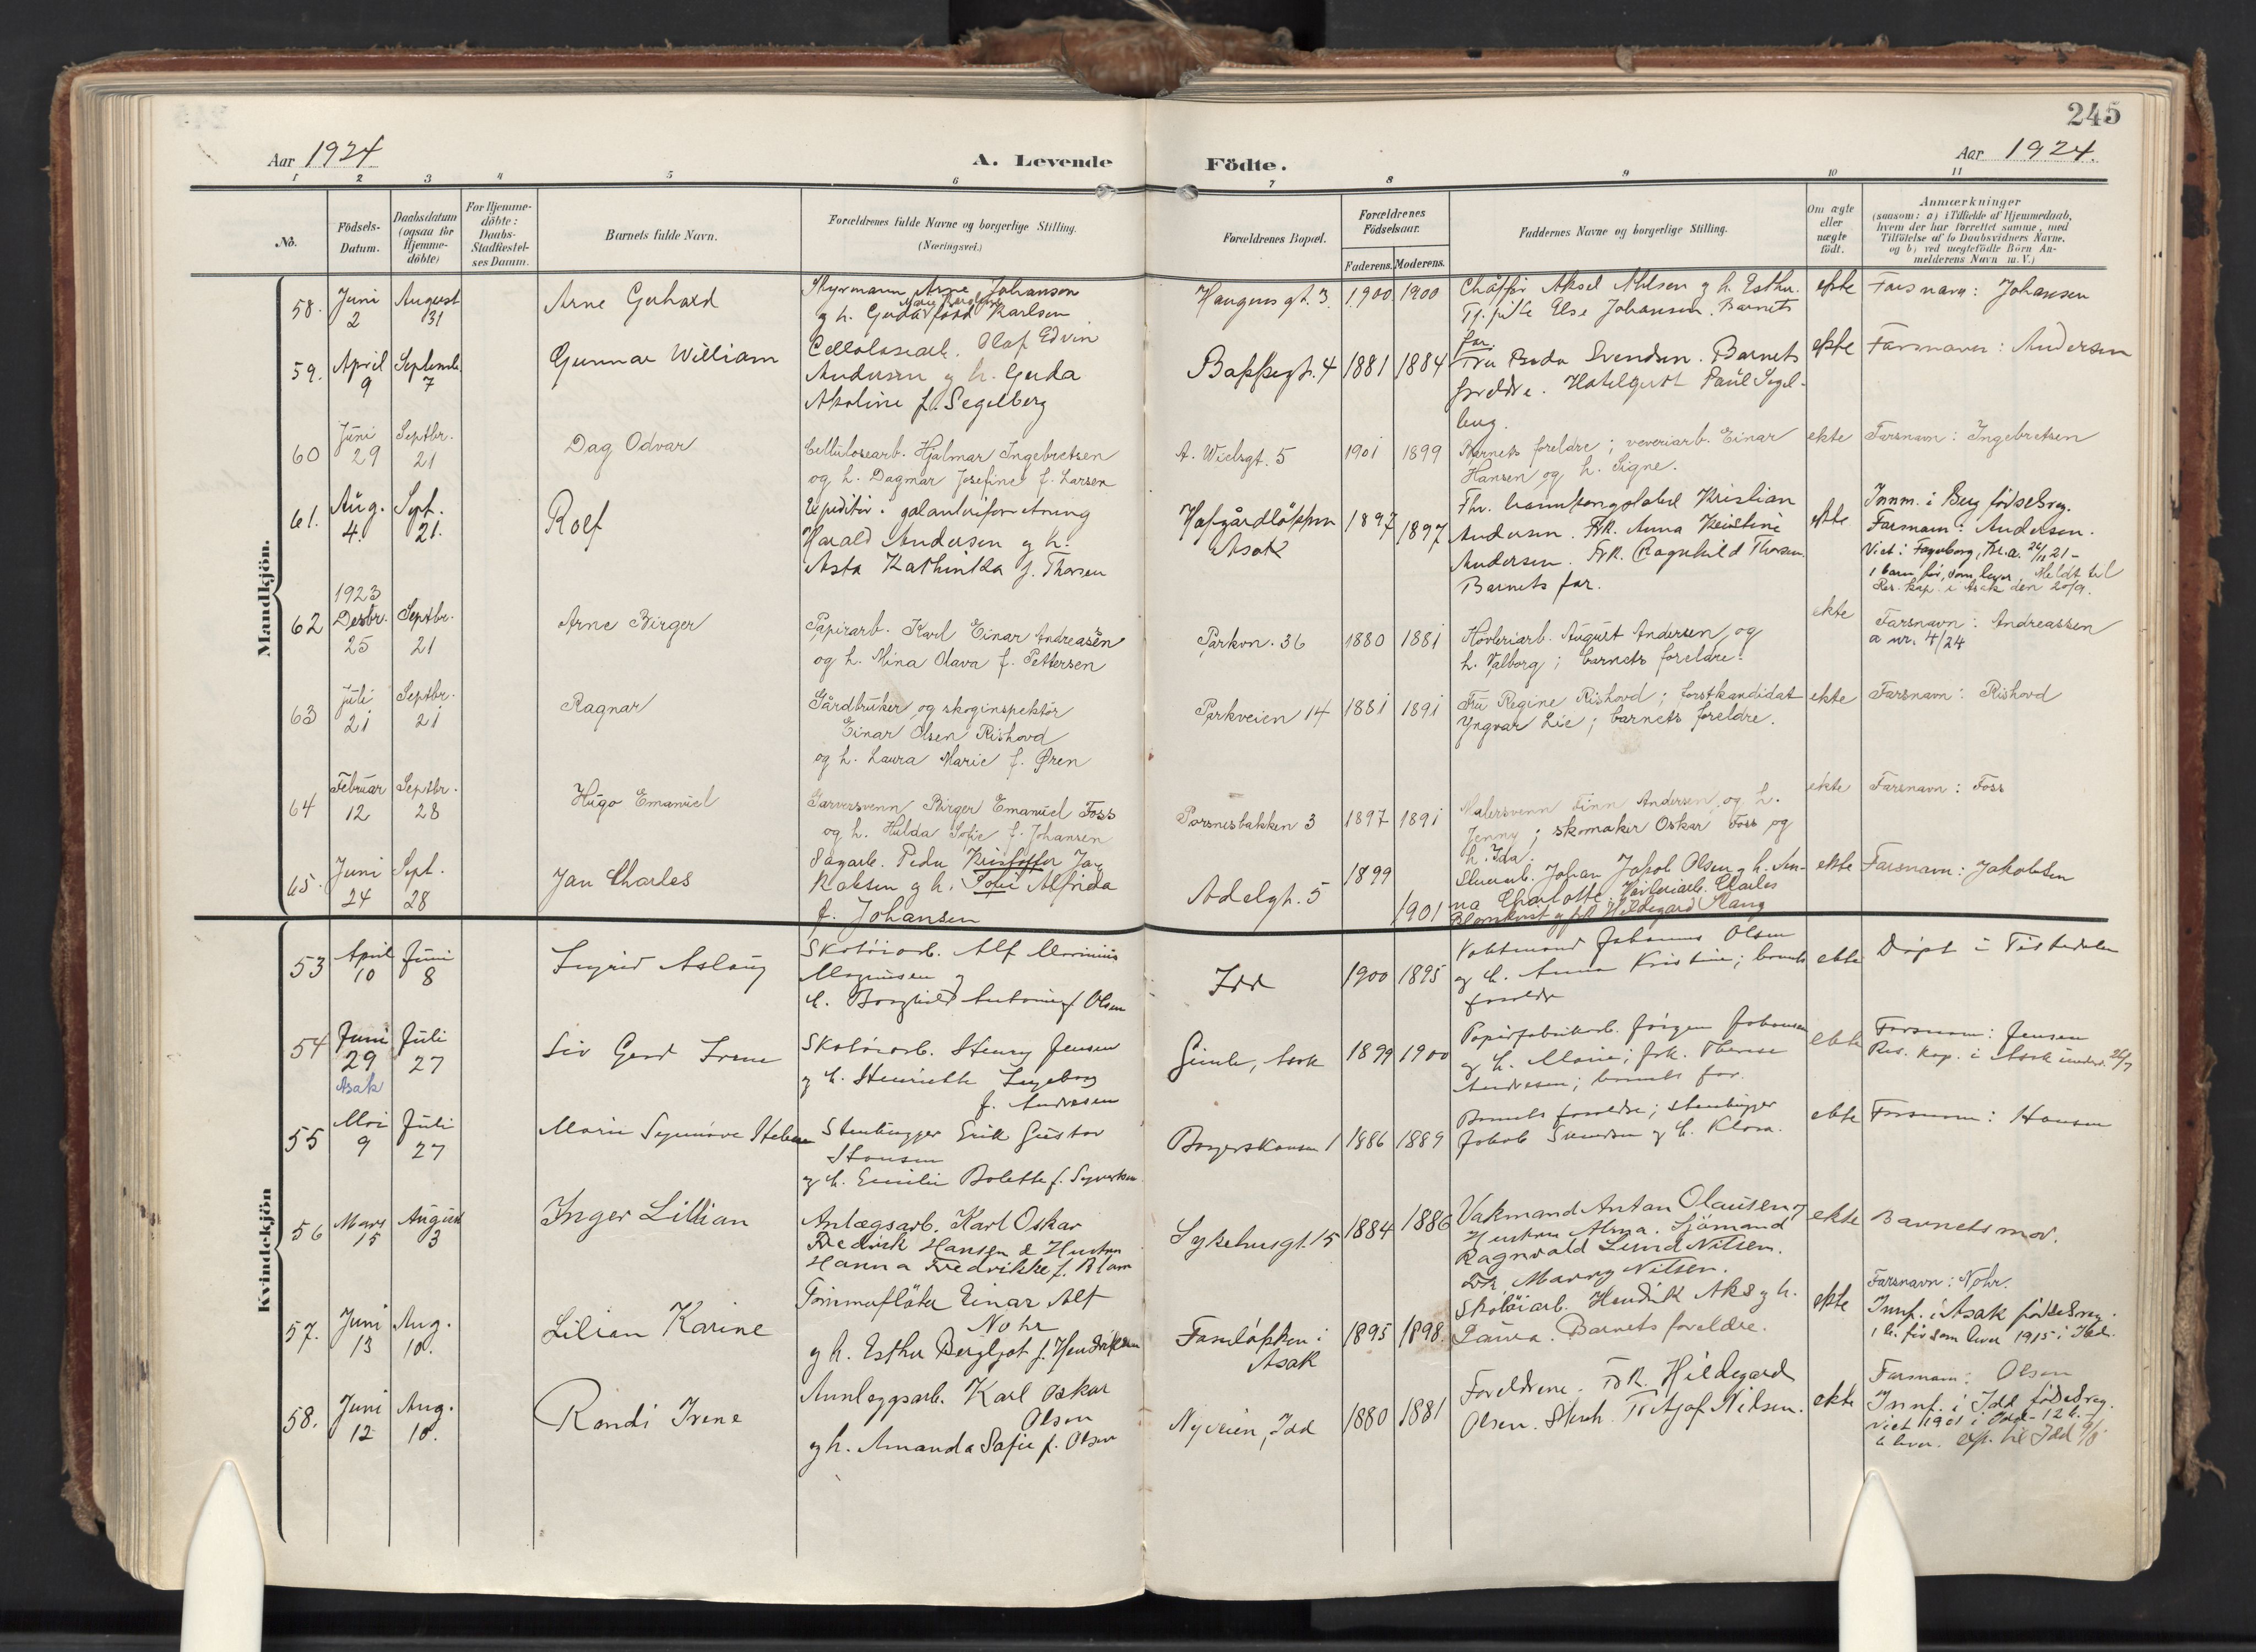 245
Aar 1924
A. Levende
Födte.
Aar 1924.
1 2 3 4 5 6 7 8 9 10 11
No.
Födsels-
Datum.
Daabsdatum
(ogsaa for
Hjemme-
döbte)
For Hjemme-
döbte:
Daabs-
Stadfæstel-
ses Datum.
Barnets fulde Navn.
Forældrenes fulde Navne og borgerlige Stilling.
(Næringsvei.)
Forældrenes Bopæl.
Forældrenes
Födselsaar.
Faderens. Moderens.
Faddernes Navne og borgerlige Stilling.
Om ægte
eller
uægte
födt.
Anmærkninger
(saasom: a) i Tilfælde af Hjemmedaab,
hvem der har forrettet samme, med
Tilföielse af to Daabsvidners Navne,
og b) ved uegtefödte Börn An-
melderens Navn m. V.)
Mandkjön.
58.
Juni
2
August
31
Arne Gerhard
Styrmann Arne Johansen
g h. Gerda født Karlsen
Haugens gt. 3.
1900
1900
Chåffør Aksel Nilsen g h. Esther.
Tj. pike Else Johansen. Barnets
far.
ekte
Farsnavn: Johansen
59.
April
9
Septemb.
7
Gunnar William
Cellolosearb. Olaf Edvin
Andersen g h. Gerda
Akoline f. Segelberg
Bakkegt. 4
1881
1884
Fru Svendsen. Barnets
foreldre. Hotelgutt Paul Segel-
berg.
ekte
Farsnavn: Andersen
60
Juni
29
Septbr.
21
Dag Odvar
Cellulosearb. Hjalmar Ingebretsen
og h. Dagmar Josefine f. Larsen
A. Wielsgt. 5
1901
1899
Barnets foreldre; veveriarb. Einar
Hansen og h. Signe.
ekte
Farsnavn: Ingebretsen
61.
Aug.
4.
Sept.
21.
Rolf
Expeditør i galanteriforretning
Harald Andersen g h.
Asta Kathinka f. Thorsen
Hafgårdløkken
Asak
1897
1897
Kristian
Andersen. Frk. Anna Kristine
Andersen. Frk. Ragnhild Thorsen.
Barnets far.
ekte
Innm. i Berg fødselsreg.
Farsnavn: Andersen.
Viet i Fagerborg, Kr.a. 26/11 21-
1 barn før, som lever. Meldt til
Res. kap. i Asak den 20/9.
62
1923
Desbr.
25
Septbr.
21
Arne Birger
Papirarb. Karl Einar Andreasen
og h. Mina Olava f. Pettersen
Parkvn. 36
1880
1881
Høvleriarb. August Andersen og
h. Valborg; barnets foreldre.
ekte
Farsnavn: Andreassen
a nr. 4/24
63
Juli
21
Septbr.
21
Ragnar
Gårdbruker og skoginspektør
Einar Olsen Rishovd
og h. Laura Marie f. Øren
Parkveien 14
1881
1891
Fru Regine Rishovd; forstkandidat
Yngvar Lie; barnets foreldre.
ekte
Farsnavn: Rishovd
64
Februar
12
Septbr.
28
Hugo Emanuel
Garversvenn Birger Emanuel Foss
og h. Hulda Sofie f. Johansen
Porsnesbakken 3
1897
1891
Malersvenn Finn Andersen og h.
Jenny; skomaker Oskar Foss og
h. Ida.
ekte
Farsnavn: Foss
65.
Juni
24
Sept.
28
Jan Charles
Sagarb. Peder Kristoffer Ja-
kobsen g h. Sofie Alfrida
f. Johansen
Adelgt. 5
1899
1901
Johan Jakob Olsen g h. An-
na Charlotte; Høvleriarb. Charles
Blomkvist g frk Hildegard Stang
ekte
Farsnavn: Jakobsen
Kvindekjön
53
April
10
Juni
8
Ingrid Aslaug
Skotöiarb. Alf Marinius
Magnusen g
h. Borghild Antonie f Olsen
Idd
1900
1895
Vaktmand Johannes Olsen
g h. Anna Kristine; barnets
foreldre
ekte
Døpt i Tistedalen
54
Juni
29
Asak
Juli
27
Liv Gerd Irene
Skotöiarb. Henry Jensen
g h. Henriette Ingeborg
f. Andresen
Gimle, Asak
1899
1900
Papirfabrikarb. Jörgen Johansen
g h. Marie; frk. Therese
Andresen; barnets far.
ekte
Farsnavn: Jensen
Res. kap. i Asak underr. 26/7
55
Mai
9
Juli
27
Marie Synnöve Helene
Stenhugger Erik Gustav
Hansen
g h. Emilie Bolette f. Syvertsen
Borgerskansen 1
1886
1889
Barnets foreldre; stenhugger
Jakob Svendsen g h. Klara.
ekte
Farsnavn: Hansen
56
Mars
15
August
3
Inger Lillian
Anlægsarb. Karl Oskar
Fredrik Hansen & Hustru
Hanna Fredrikke f. Blom
Sykehusgt. 15
1884
1886
Vakmand Anton Olausen g
Hustru Alma. Sjömand
Ragnvald Lund Nilsen.
Frk. Manny Nilsen.
ekte
Barnets mor.
57.
Juni
13
Aug.
10.
Lilian Karine
Tömmerfløter Einar Alf
Nohr
g h. Esther Bergljot f. Hendriksen
Fossløkken i
Asak
1895
1898.
Skotöiarb. Hendrik Aks g h.
Laura. Barnets foreldre.
ekte
Farsnavn: Nohr.
Innf. i Asak fødselsreg.
1 b. før som lever 1915 i Idd.
58.
Juni
12
Aug.
10.
Randi Irene
Annleggsarb. Karl Oskar
Olsen
g h. Amanda Sofie f. Olsen
Nyveien, Idd
1880
1881
Foreldrene. Frk. Hildegard
Olsen. Stenh. Fritjof Nilsen.
ekte
Farsnavn: Olsen
Innf. i Idd fødselsreg.
Viet 1901 i Idd - 12 b. -
6 lever. Exp. til Idd